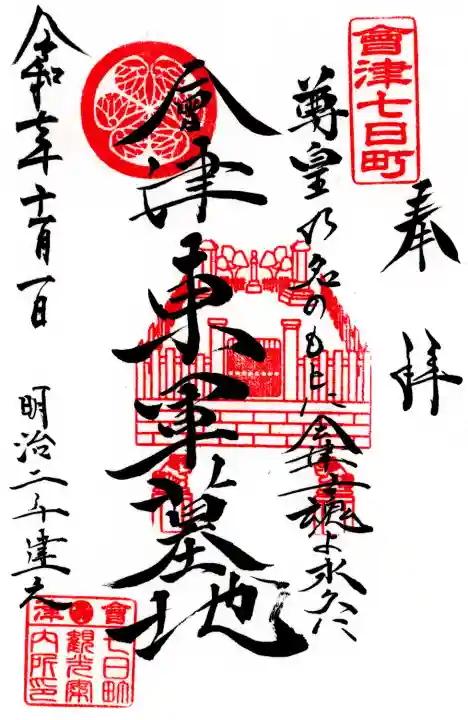 會津七日町
奉拝
尊皇の名のもとに会津士魂よ永久に
會津東軍墓地
令和六年十一月一日
明治二年建之
會津七日町観光案内所印